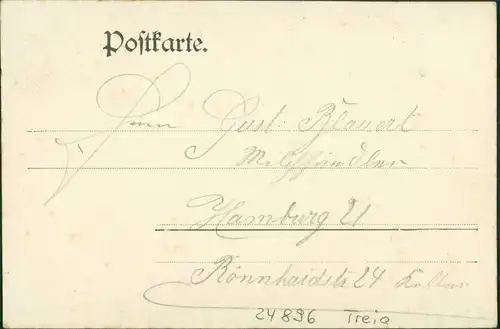 Postkarte.
Herrn Gust. Blauert
Milchhändler
Hamburg 21
Rönnhaidstr 24 Keller
24896 Treia